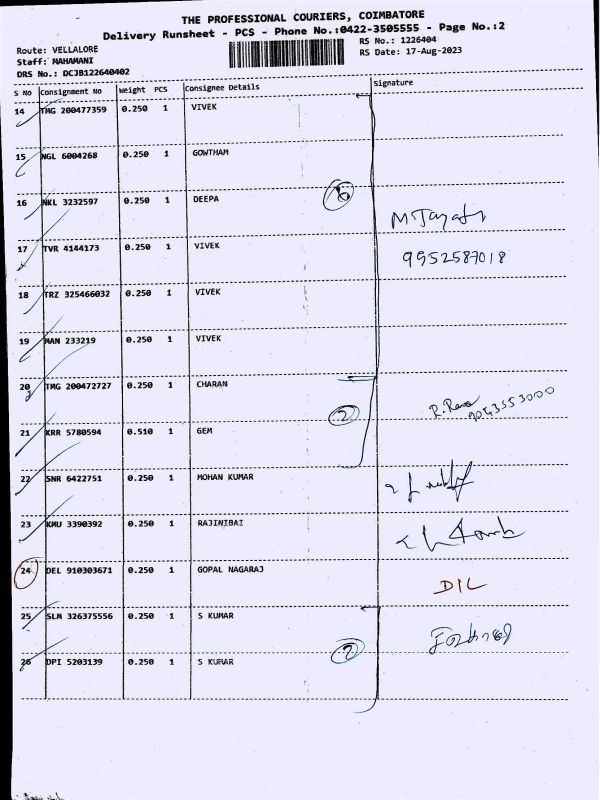 THE PROFESSIONAL COURIERS, COIMBATORE
Delivery Runsheet - PCS - Phone No.:0422-3505555 - Page No.:2
Route: VELLALORE
RS No.: 1226404
Staff: MAHAMANI
RS Date: 17-Aug-2023
DRS No.: DCJB122640402
S No Consignment No Weight PCS Consignee Details Signature
14 TMG 200477359 0.250 1 VIVEK
15 NGL 6004268 0.250 1 GOWTHAM
16 NKL 3232597 0.250 1 DEEPA 6
17 TVR 4144173 0.250 1 VIVEK 9952587018
18 TRZ 325466032 0.250 1 VIVEK
19 MAN 233219 0.250 1 VIVEK
20 TMG 200472727 0.250 1 CHARAN
2
21 KRR 5780594 0.510 1 GEM
22 SNR 6422751 0.250 1 MOHAN KUMAR
23 KMU 3390392 0.250 1 RAJINIBAI
24 DEL 910303671 0.250 1 GOPAL NAGARAJ DIL
25 SLM 326375556 0.250 1 S KUMAR
26 DPI 5203139 0.250 1 S KUMAR 2